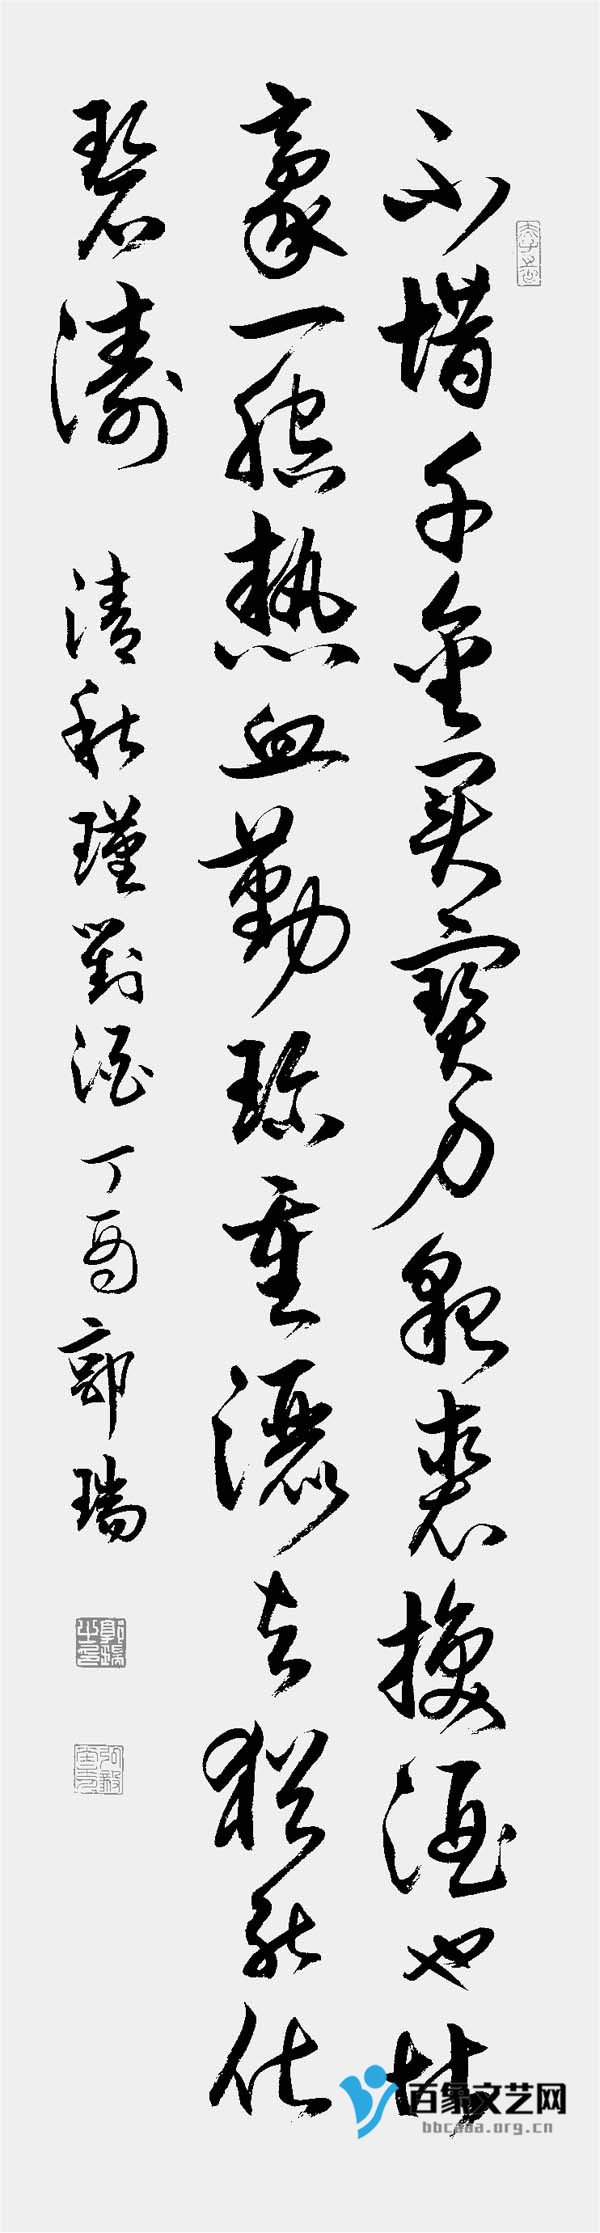 不惜千金買寶刀貂裘換酒也堪
豪一腔熱血勤珍重灑去猶能化
碧濤 清秋瑾對酒丁酉郭瑞
百家文艺网
bbcaaa.org.cn